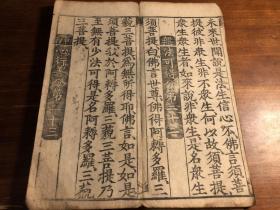 未來世聞說是法生信心不佛言須菩
提彼非衆生非不衆生何以故須菩提
衆生衆生者如來說非衆生是名衆生
無法可得分第二十二
須菩提白佛言世尊佛得阿耨多羅
三藐三菩提爲無所得耶佛言如是如是
須菩提我於阿耨多羅三藐三菩提乃
至無有少法可得是名阿耨多羅三藐
三菩提
淨心行善分第二十三